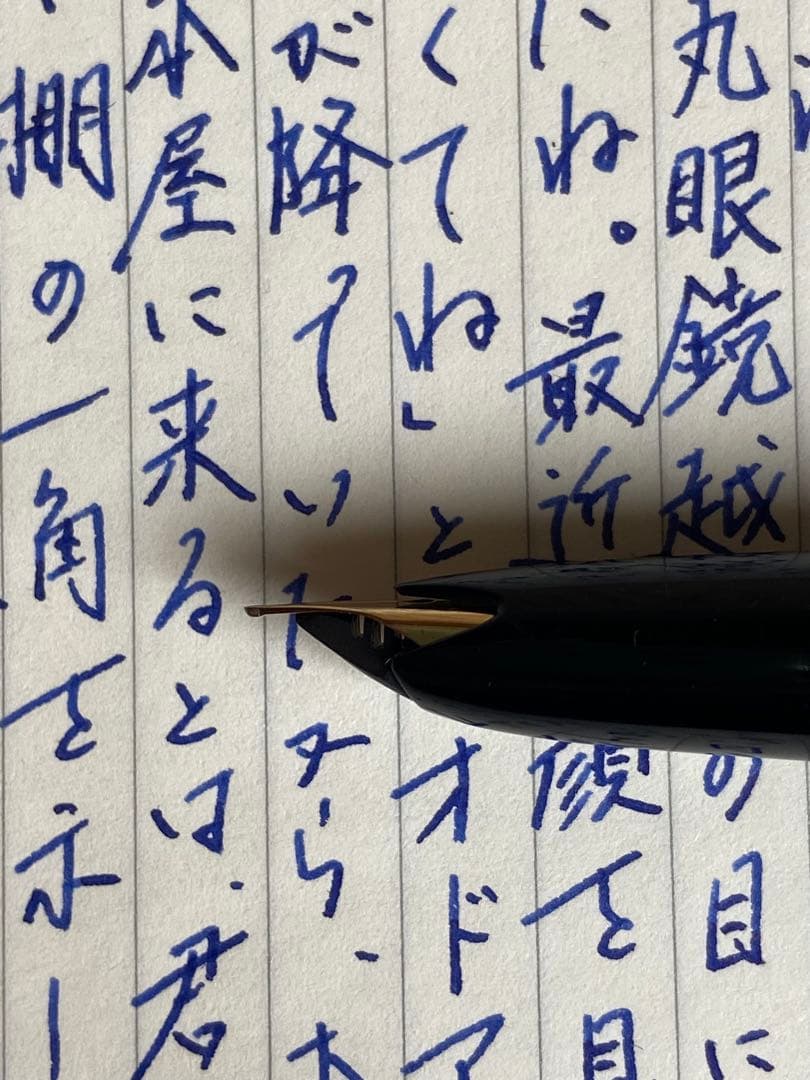 丸眼鏡越の目に
にね。最近顔を見
くてね」とオドア
が降っていたから、
本屋に来るとは、君
棚の一角をホー